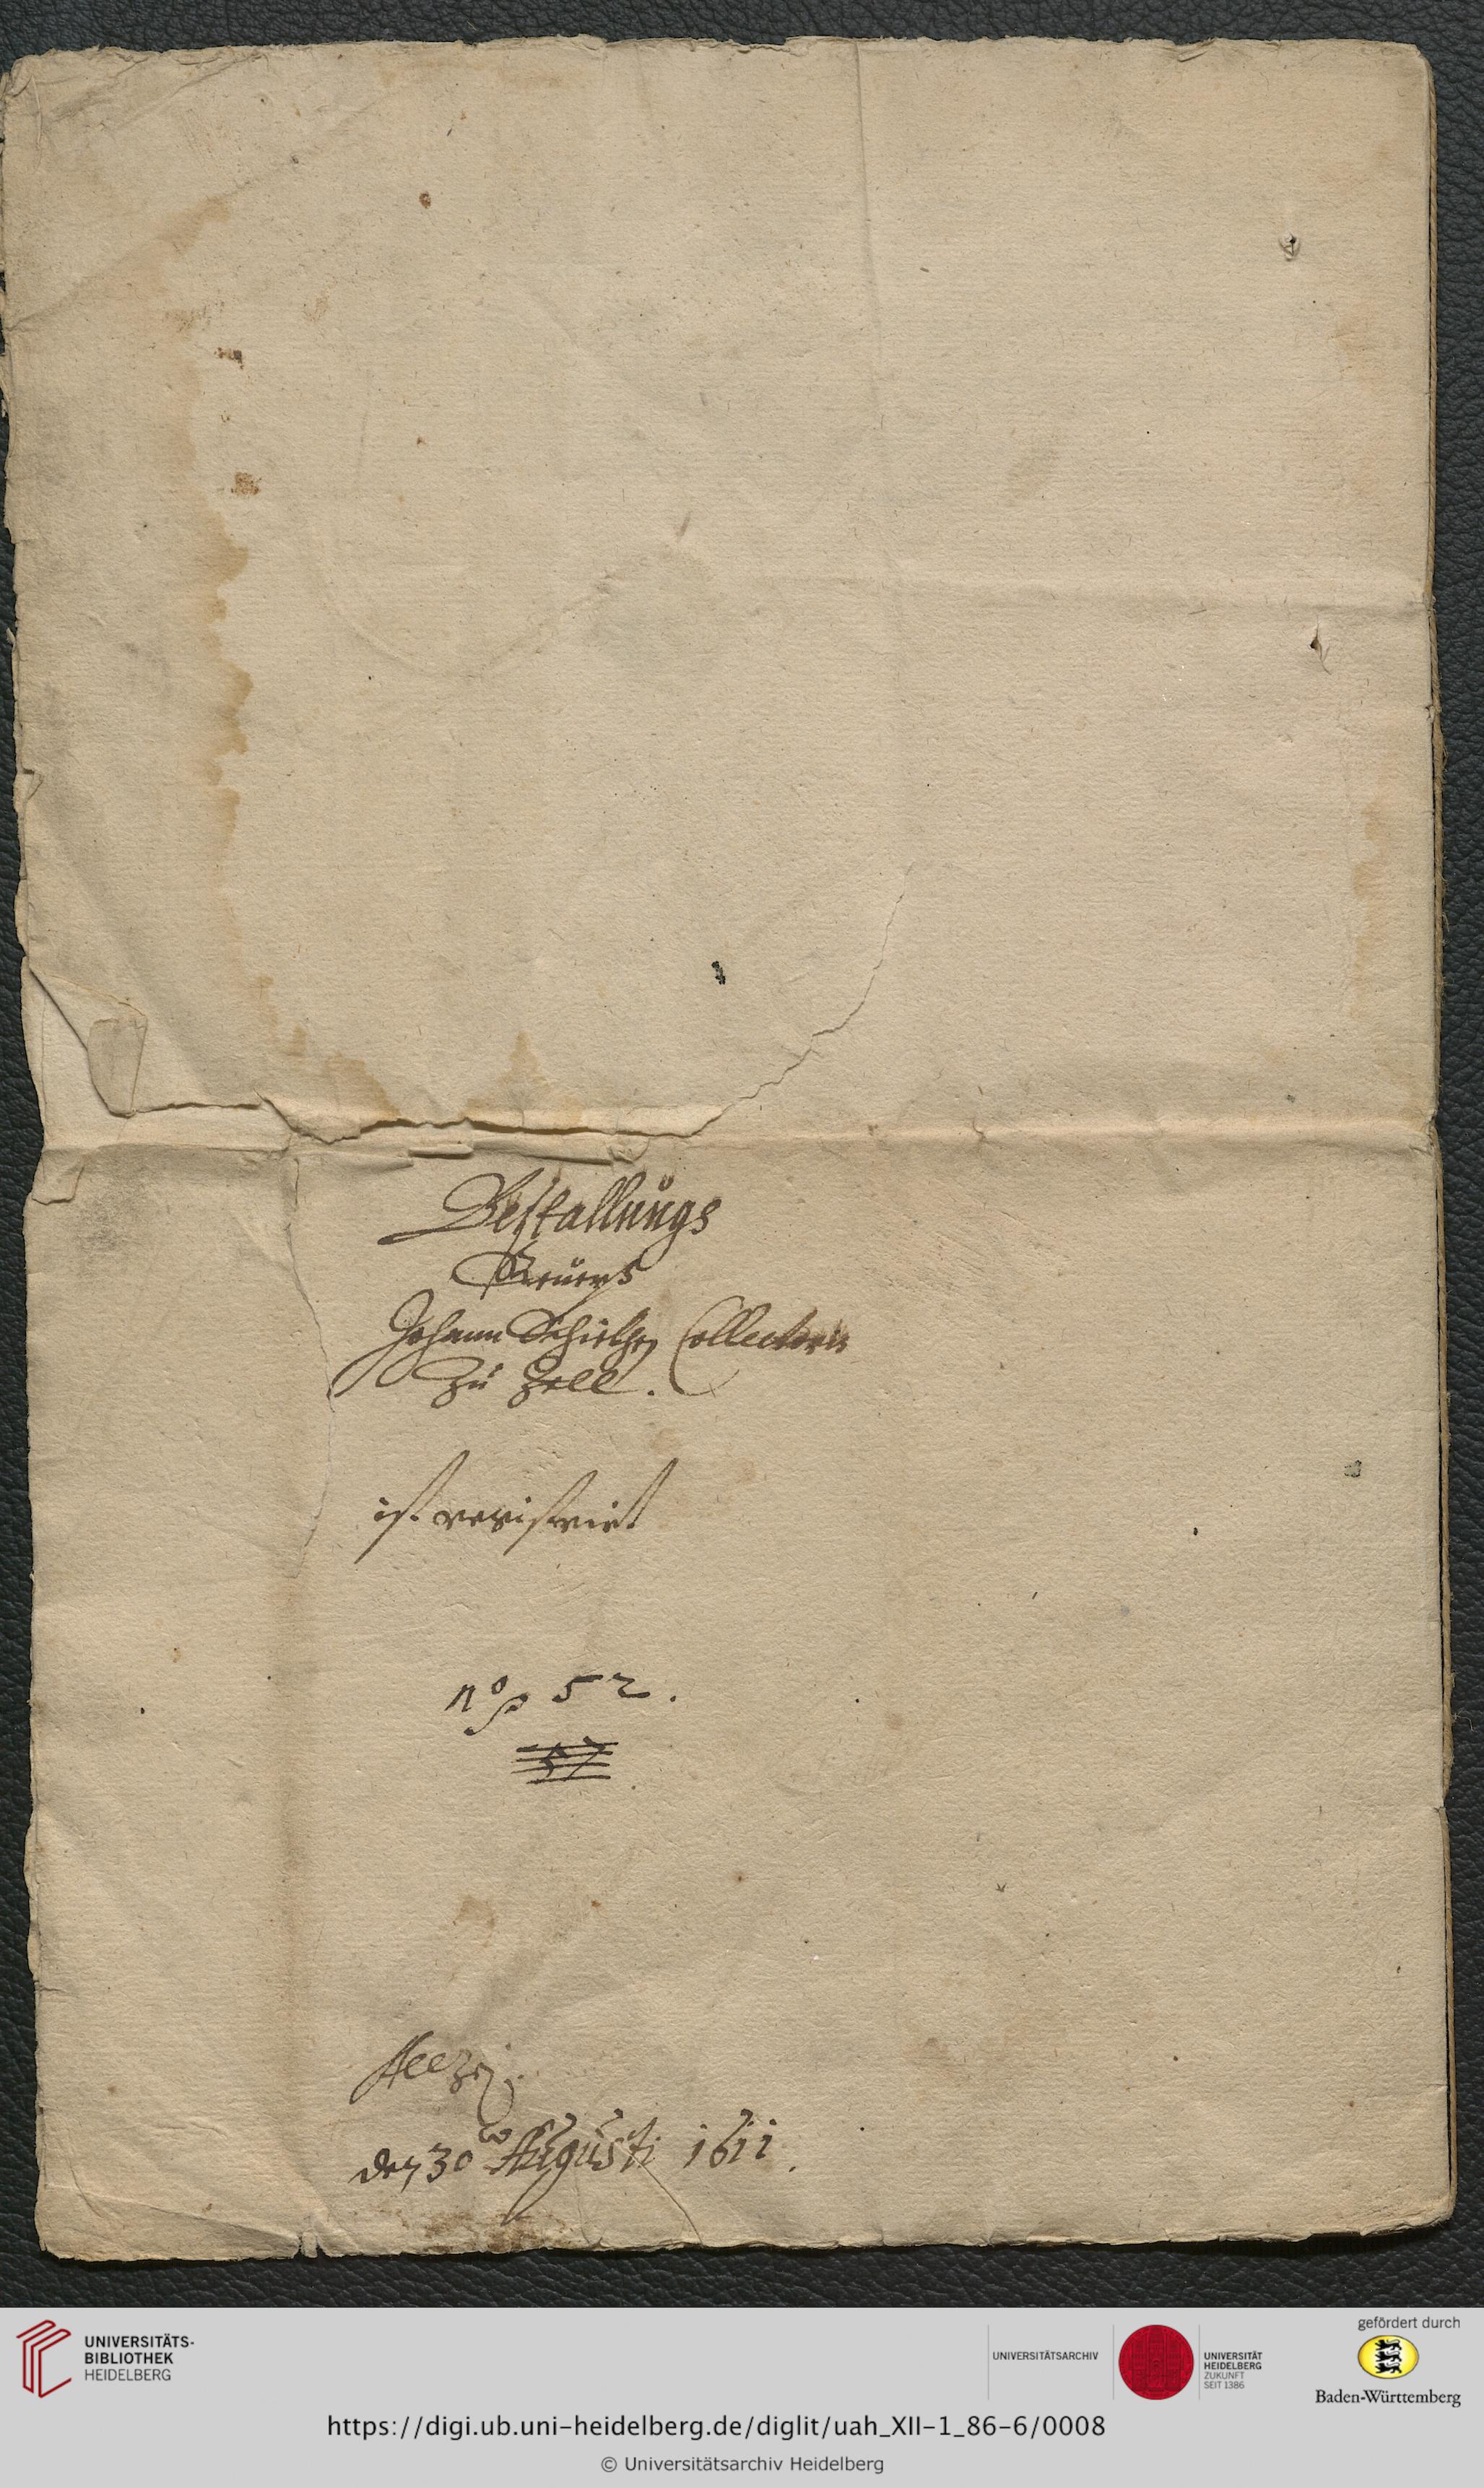 Bestallungs
Reuers
Johann Collectoris
Zu Zell.
ist registrirt
nº 52.
57
Altzej.
den 30 Augusti 1611.
UNIVERSITÄTS-
BIBLIOTHEK
HEIDELBERG
UNIVERSITÄTSARCHIV
UNIVERSITÄT
HEIDELBERG
ZUKUNFT
SEIT 1386
gefördert durch
Baden-Württemberg
https://digi.ub.uni-heidelberg.de/diglit/uah_XII-1_86-6/0008
© Universitätsarchiv Heidelberg